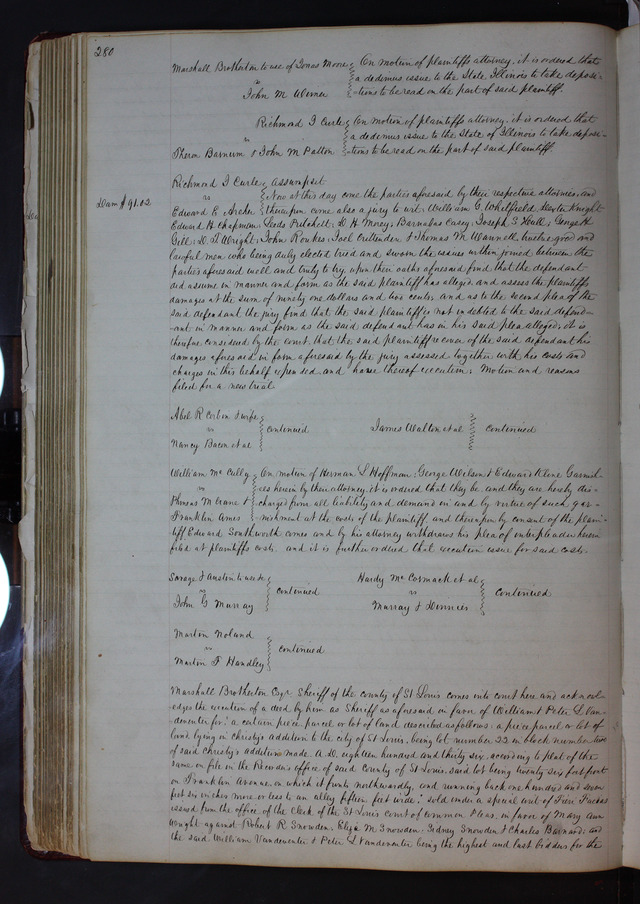 280
Marshall Brotherton to use of Jonas Moore On motion of plaintiffs attorney, it is ordered that
vs a dedimus issue to the State Illinois to take deposi-
John M Werner -tions to be read on the part of said plaintiff.
Richmond J Curle On motion of plaintiffs attorney, it is ordered that
vs a dedimus issue to the State of Illinois to take deposi-
Theron Barnum & John M Patton -tions to be read on the part of said plaintiff
Richmond J Curle Assumpsit
Dam $91.02 vs Now at this day come the parties aforesaid by their respective attornies and
Edward E Archer thereupon come also a jury to wit: William G Whitfield, Dexter Knight
Edward H Chapman, Leeds Pritchett, D H Morey, Barnabas Casey, Joseph S Hull, George H
Gill, D T Wright, John Roukes, Joel Crittenden & Thomas M Wannell, twelve good and
lawful men who being duly elected tried and sworn the issues within joined between the
parties aforesaid well and truly to try, upon their oaths aforesaid find that the defendant
did assume in manner and form as the said plaintiff has alleged and assess the plaintiffs
damages at the sum of ninety one dollars and two cents, and as to the second plea of the
said defendant the jury find that the said plaintiff is not indebted to the said defend-
-ant in manner and form as the said defendant has in his said plea alleged; it is
therefore considered by the court that the said plaintiff recover of the said defendant his
damages aforesaid in form aforesaid by the jury assessed together with his costs and
charges in this behalf expended, and have thereof execution; Motion and reasons
filed for a new trial
Abel R Corbin & wife James Walton et al
vs continued continued
Nancy Bacon et al
William McCully On motion of Herman L Hoffman, George Nelson & Edward Kline Garnish-
vs ees herein by their attorney, it is ordered that they be, and they are hereby dis-
Phineas M Crane & charged from all liability and demand in and by virtue of such gar-
Franklin Ames nishment at the costs of the plaintiff, and thereupon by consent of the plain-
tiff Edward Southworth comes and by his attorney withdraws his plea of interpleader herein
filed at plaintiffs costs. and it is further ordered that execution issue for said costs.
Savage & Austin to use &c Hardy McCormack et al
vs continued vs continued
John G Murray Murray &
Martin Noland
vs continued
Martin F Handley
Marshall Brotherton Esqr Sheriff of the county of St Louis comes into court here and acknowl-
-edges the execution of a deed by him as Sheriff as aforesaid in favor of William & Peter L Van-
deventer for "a certain piece parcel or lot of land described as follows: a piece parcel or lot of
land lying in christy's addition to the city of St Louis, being lot number 22 in block number two
of said christy's addition made A.D. eighteen hundred and thirty six, according to plat of the
same on file in the Recorders office of said County of St Louis, said lot being twenty six feet front
on Franklin avenue, on which it fronts northwardly, and running back one hundred and seven
feet six inches more or less to an alley fifteen feet wide." sold under a special writ of Fieri Facias
issued from the office of the clerk of the St Louis court of common Pleas, in favor of Mary Ann
Wright against Robert R Snowden, Eliza M Snowden, Sidney Snowden & Charles Barnard; and
the said William Vandeventer & Peter L Vandeventer being the highest and last bidders for the